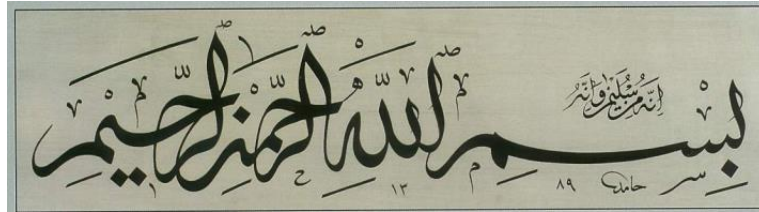 إِنَّهُ مِنْ سُلَيْمٰنَ وَإِنَّهُ
بِسْمِ اللّٰهِ الرَّحْمٰنِ الرَّحِيمِ
حامد ١٣ ٨٩